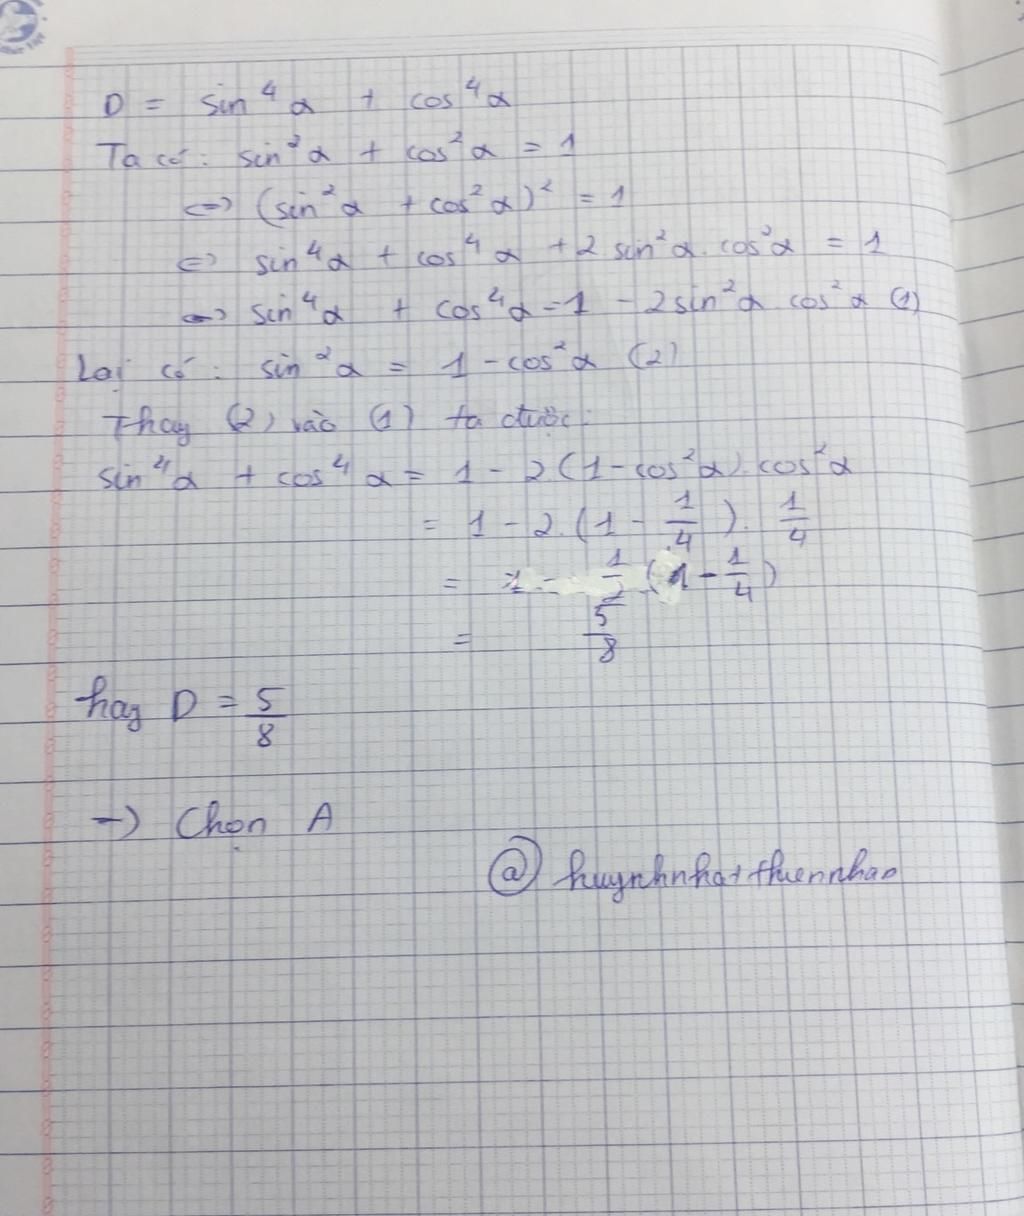 D = sin⁴α + cos⁴α
Ta có: sin²α + cos²α = 1
⇔ (sin²α + cos²α)² = 1
⇔ sin⁴α + cos⁴α + 2 sin²α. cos²α = 1
⇔ sin⁴α + cos⁴α = 1 - 2sin²α cos²α (1)
Lại có: sin²α = 1 - cos²α (2)
Thay (2) vào (1) ta được:
sin⁴α + cos⁴α = 1 - 2.(1-cos²α). cos²α
= 1 - 2.(1 - 1/4). 1/4
= 1 - 1/2 (1 - 1/4)
= 5/8
hay D = 5/8
→ Chọn A
@ huynhnhatthuennhan